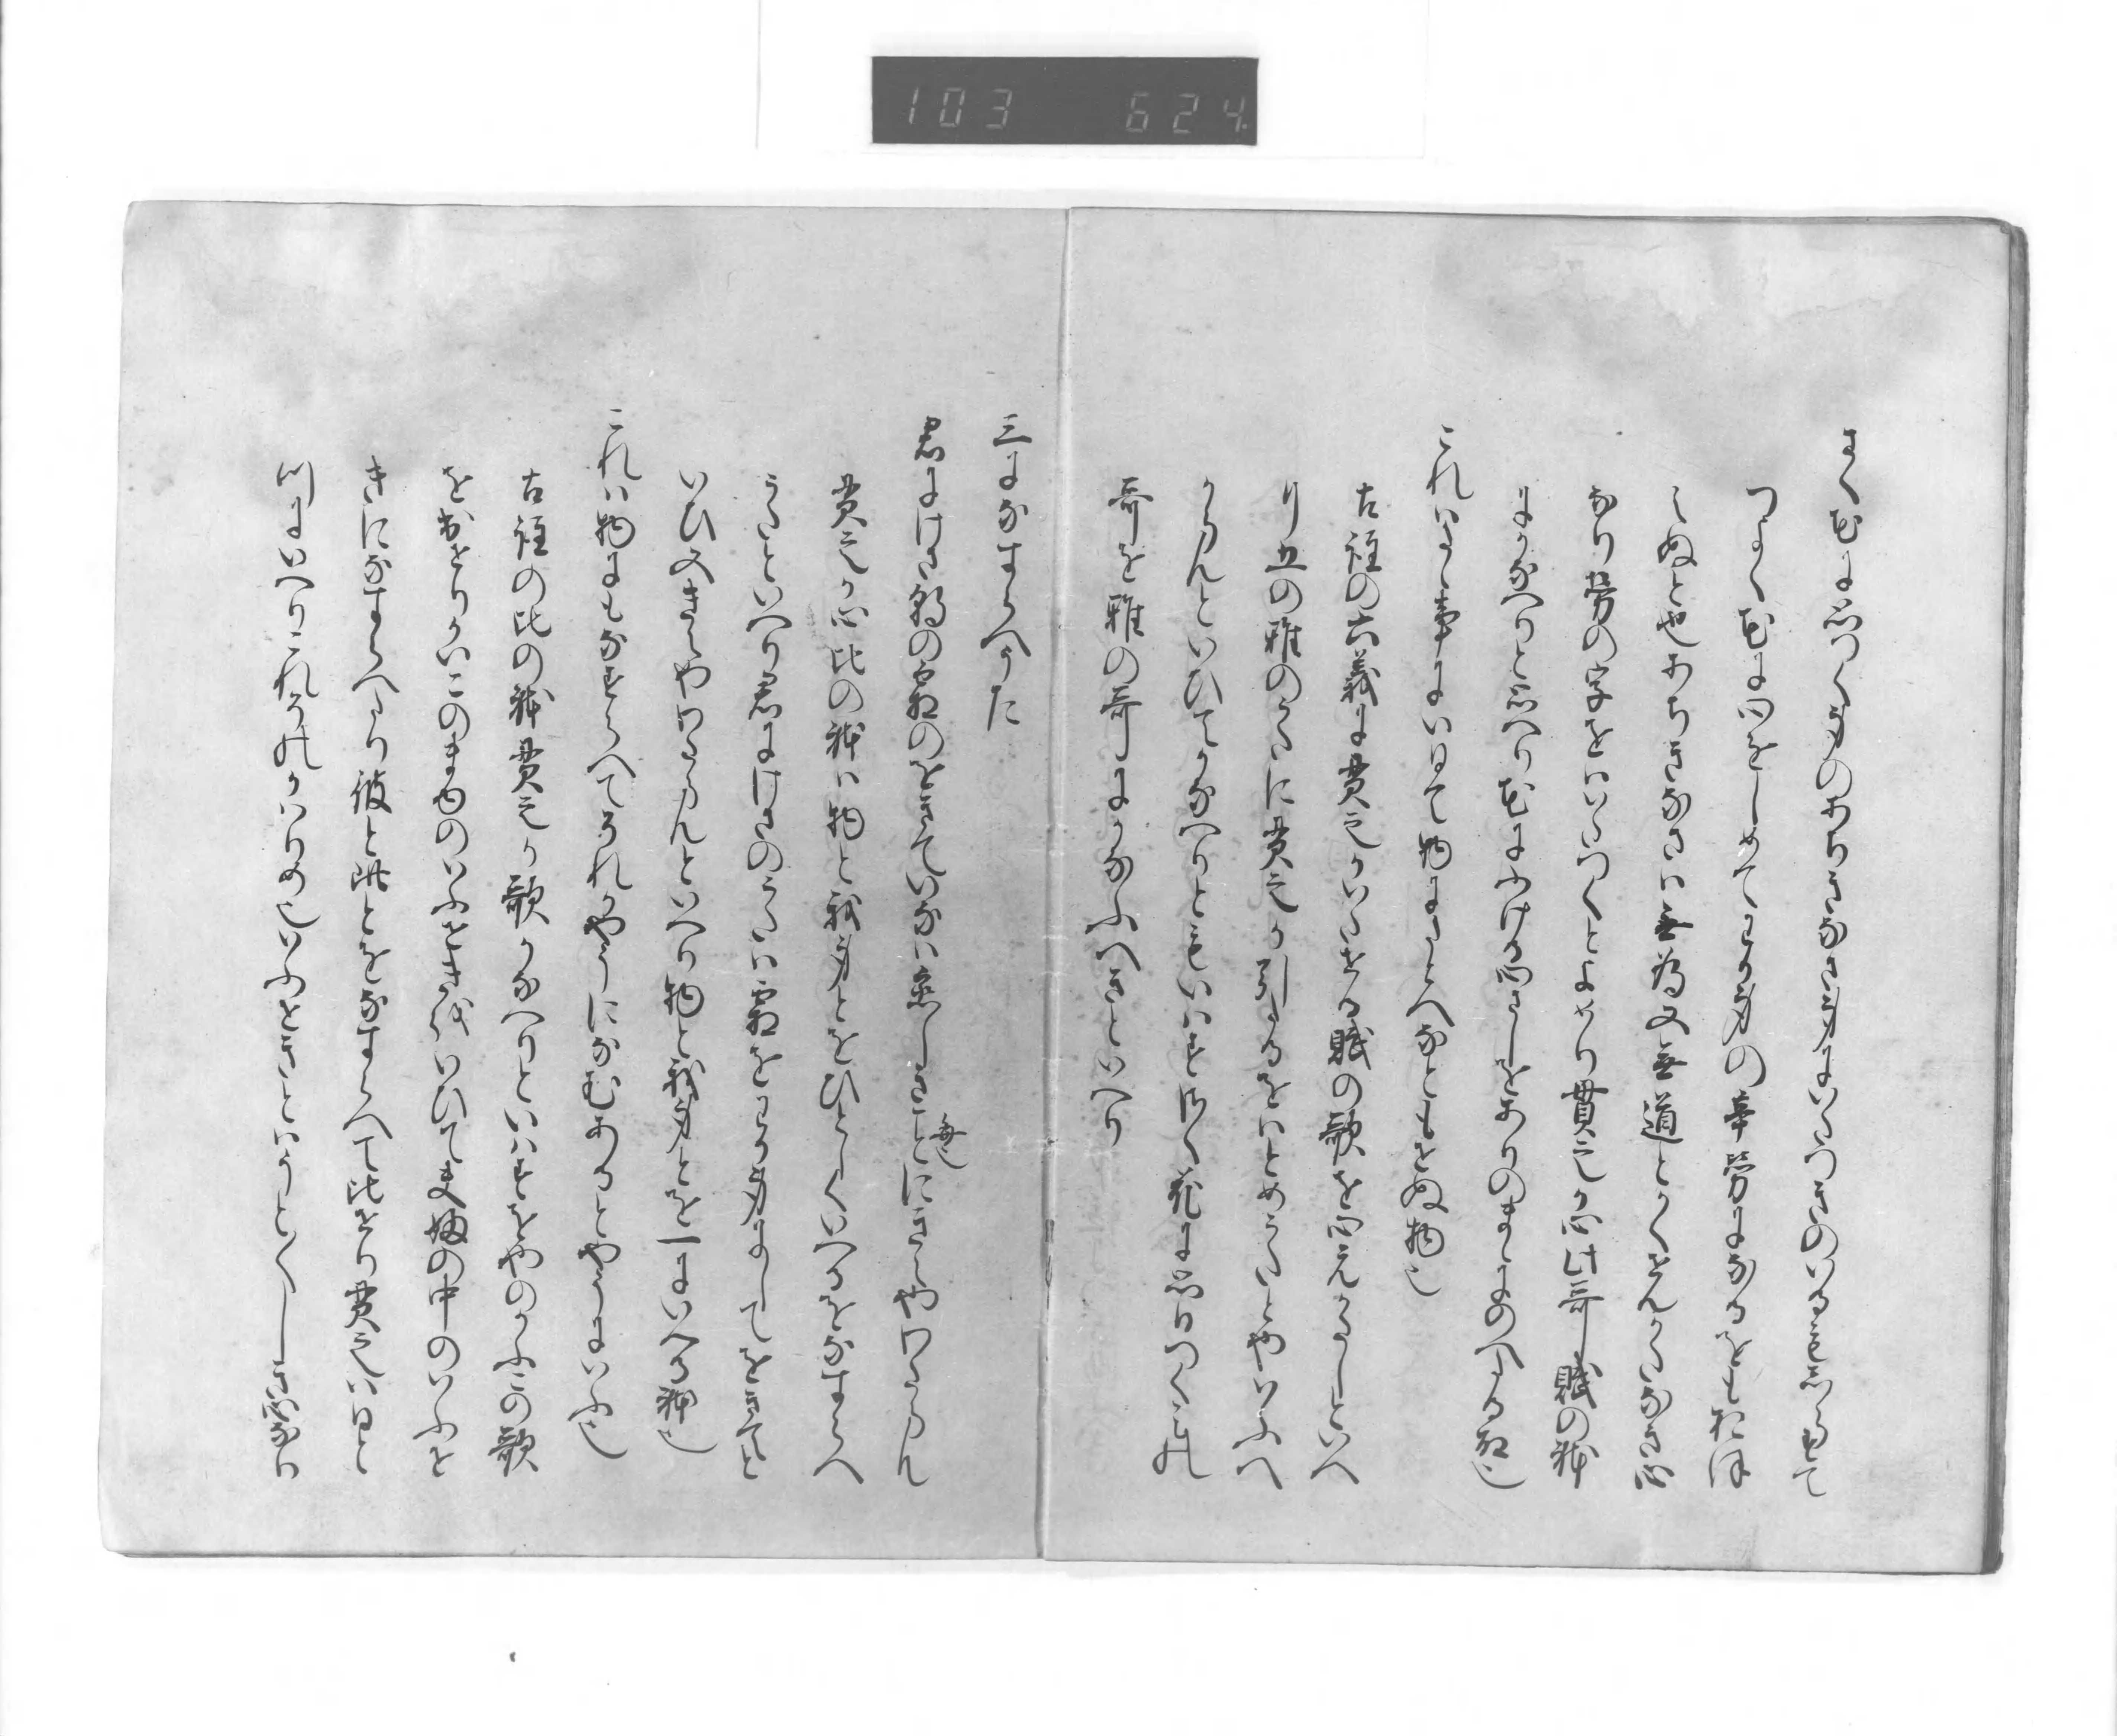 103 624
さく花に思つく身のあちきなさ身にいたつきのいるもしらすて
つさく花に心をしめてわか身の辛労になるをもおほ
えぬと也あちきなさは無為又無道とかくせんかたなき心
なり労の字をいたつくとよめり貫之か心此哥賦の躰
にかなへりと思へり花にふける心さしをありのまゝにのへたる故也
これはたゝ事にいひて物にたとへなともせぬ物也
古注の六義に貫之かいたせる賦の歌を心えかたしといへ
り五の雅のうたに貫之か引けるをはとめうたとやいふへ
からんといひてかなへりともいはす只さく花に思ひつくの
哥を雅の哥にはかなふへきといへり
三になすらへうた
君にけさ朝の霜のをきていなは恋しきことにきえやわたらん
毎也
貫之か心比の躰は物と我身とをひとしくいへるをなすらへ
うたといへり君にけさのうたは霜をわか身にしてをきてと
いひ又きえやわたらんといへり物と我身とを一にいへる躰也
これは物にもなすらへてそれかやうになむあるとやうにいふ也
古注の比の躰貫之か歌かなへりといはすたらちめのおやのかふこの歌
を出せりかいこのまゆのいふせきをいひて又妹の中のいふせ
きになすらへたり彼と此とをなすらへて比せり貫之はひと
つにいへりこれのみかはりめ也いふせきとはうとくしき心なり